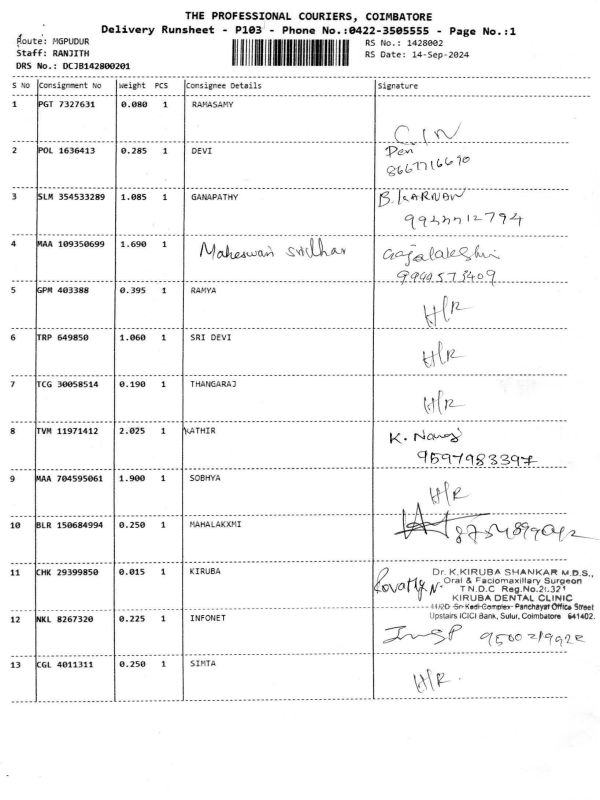 THE PROFESSIONAL COURIERS, COIMBATORE
Delivery Runsheet - P103 - Phone No.:0422-3505555 - Page No.:1
Route: MGPUDUR RS No.: 1428002
Staff: RANJITH RS Date: 14-Sep-2024
DRS No.: DCJB142800201
S No Consignment No Weight PCS Consignee Details Signature
1 PGT 7327631 0.080 1 RAMASAMY
2 POL 1636413 0.285 1 DEVI
3 SLM 354533289 1.085 1 GANAPATHY
4 MAA 109350699 1.690 1 Maheswari Sridhar
5 GPM 403388 0.395 1 RAMYA H/R
6 TRP 649850 1.060 1 SRI DEVI H/R
7 TCG 30058514 0.190 1 THANGARAJ H/R
8 TVM 11971412 2.025 1 KATHIR
9597983397
9 MAA 704595061 1.900 1 SOBHYA H/R
10 BLR 150684994 0.250 1 MAHALAKXMI
11 CHK 29399850 0.015 1 KIRUBA
Dr. K.KIRUBA SHANKAR M.D.S.,
Oral & Faciomaxillary Surgeon
T.N.D.C Reg.No.21321
KIRUBA DENTAL CLINIC
Panchayat Office Street
Upstairs ICICI Bank, Sulur, Coimbatore 641402.
12 NKL 8267320 0.225 1 INFONET
13 CGL 4011311 0.250 1 SIMTA H/R